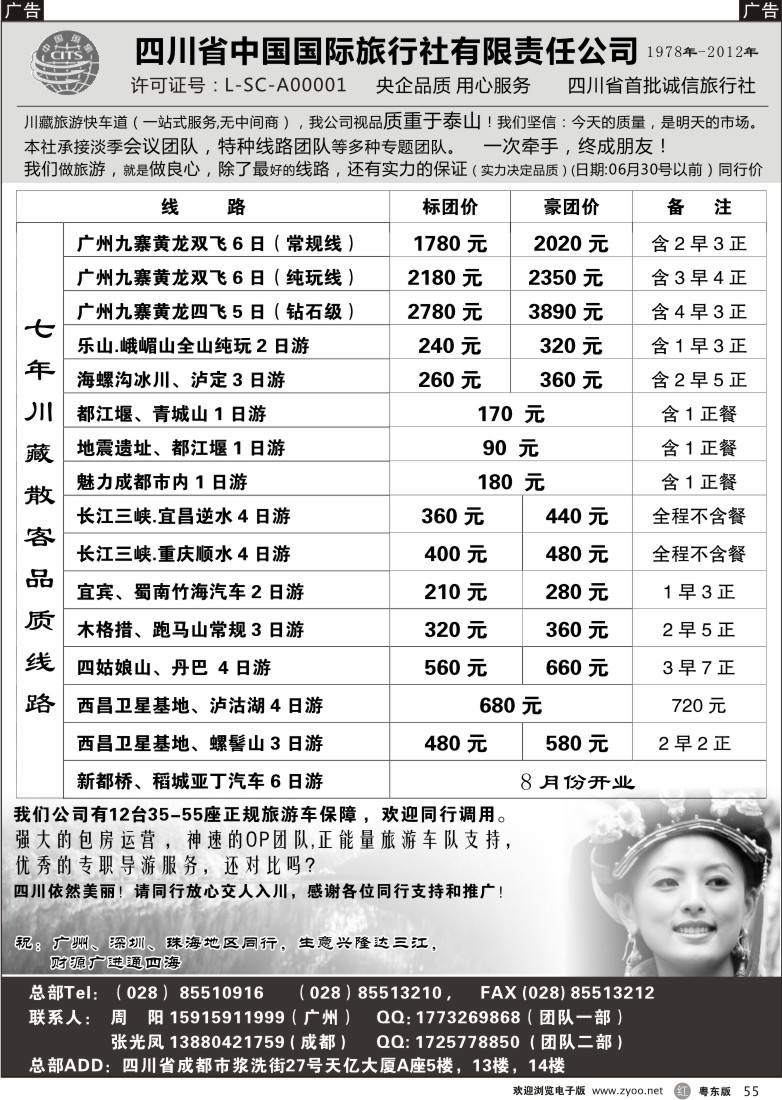 广告
广告
CITS
四川省中国国际旅行社有限责任公司 1978年-2012年
许可证号：L-SC-A00001 央企品质 用心服务 四川省首批诚信旅行社
川藏旅游快车道（一站式服务,无中间商），我公司视品质重于泰山！我们坚信：今天的质量，是明天的市场。
本社承接淡季会议团队，特种线路团队等多种专题团队。 一次牵手，终成朋友！
我们做旅游，就是做良心，除了最好的线路，还有实力的保证（实力决定品质）(日期:06月30号以前）同行价
线 路 标团价 豪团价 备 注
七年川藏散客品质线路
广州九寨黄龙双飞 6 日（常规线） 1780 元 2020 元 含 2 早 3 正
广州九寨黄龙双飞 6 日（纯玩线） 2180 元 2350 元 含 3 早 4 正
广州九寨黄龙四飞 5 日（钻石级） 2780 元 3890 元 含 4 早 3 正
乐山.峨嵋山全山纯玩 2 日游 240 元 320 元 含 1 早 3 正
海螺沟冰川、泸定 3 日游 260 元 360 元 含 2 早 5 正
都江堰、青城山 1 日游 170 元 含 1 正餐
地震遗址、都江堰 1 日游 90 元 含 1 正餐
魅力成都市内 1 日游 180 元 含 1 正餐
长江三峡.宜昌逆水 4 日游 360 元 440 元 全程不含餐
长江三峡.重庆顺水 4 日游 400 元 480 元 全程不含餐
宜宾、蜀南竹海汽车 2 日游 210 元 280 元 1 早 3 正
木格措、跑马山常规 3 日游 320 元 360 元 2 早 5 正
四姑娘山、丹巴 4 日游 560 元 660 元 3 早 7 正
西昌卫星基地、泸沽湖 4 日游 680 元 720 元
西昌卫星基地、螺髻山 3 日游 480 元 580 元 2 早 2 正
新都桥、稻城亚丁汽车 6 日游 8 月份开业
我们公司有12台35-55座正规旅游车保障，欢迎同行调用。
强大的包房运营，神速的OP团队,正能量旅游车队支持，
优秀的专职导游服务，还对比吗？
四川依然美丽！请同行放心交人入川，感谢各位同行支持和推广！
祝：广州、深圳、珠海地区同行，生意兴隆达三江，
财源广进通四海
总部Tel：（028）85510916 （028）85513210， FAX (028) 85513212
联系人： 周 阳 15915911999（广州） QQ: 1773269868（团队一部）
张光凤 13880421759（成都） QQ: 1725778850（团队二部）
总部ADD：四川省成都市浆洗街27号天亿大厦A座5楼，13楼，14楼
欢迎浏览电子版 www.zyoo.net 红 粤东版 55